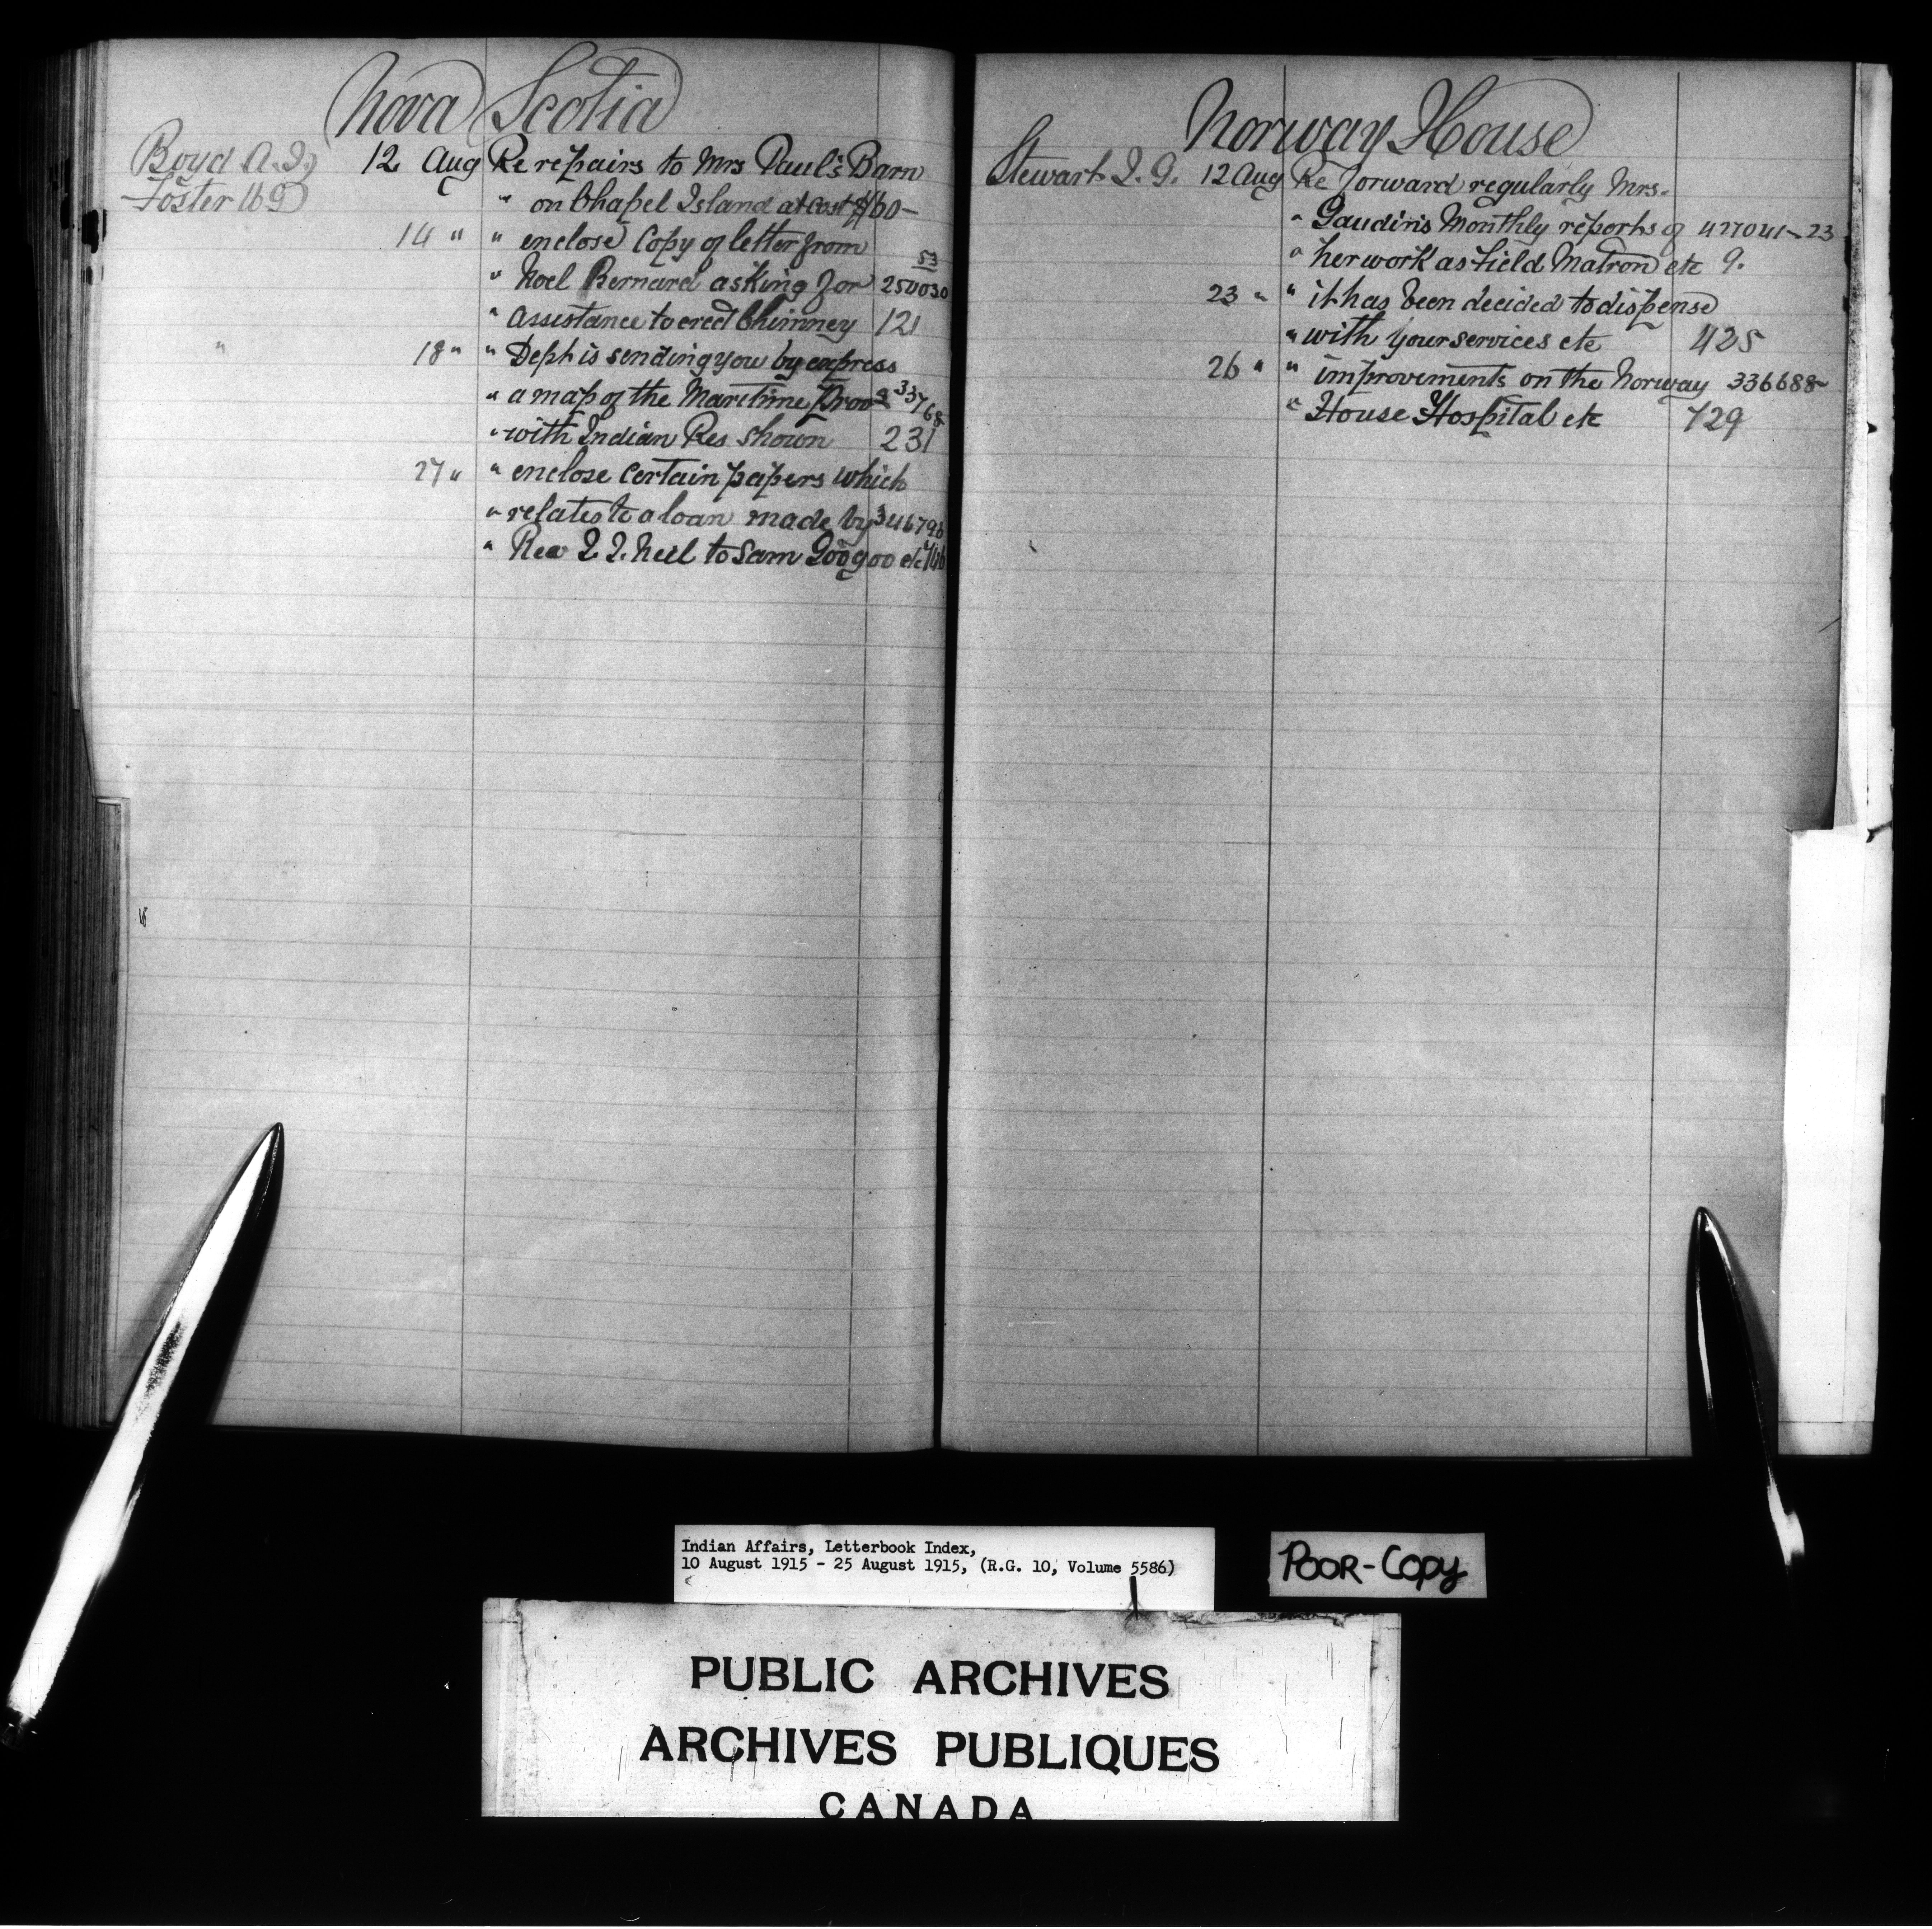 Nova Scotia
Boyd A. J. 12 Aug Re repairs to Mrs Paul's Barn
Foster " on Chapel Island at cost $60-
14 " " enclose copy of letter from
" Noel Bernard asking for 250030 53
" assistance to erect Chimney 121
" 18 " " Dept is sending you by express
" a map of the Maritime Prov 33768
" with Indian Res shown 231
27 " " enclose certain papers which
" relates to a loan made by 346793
" Rev Neil to Sam Googoo etc
Norway House
Stewart J. G. 12 Aug Re forward regularly Mrs.
" Gaudin's Monthly reports of 427041-23
" her work as Field Matron etc 9.
23 " " it has been decided to dispense
" with your services etc 425
26 " " improvements on the Norway 336688
" House Hospital etc 729
Indian Affairs, Letterbook Index,
10 August 1915 - 25 August 1915, (R.G. 10, Volume 5586)
POOR-COPY
PUBLIC ARCHIVES
ARCHIVES PUBLIQUES
CANADA